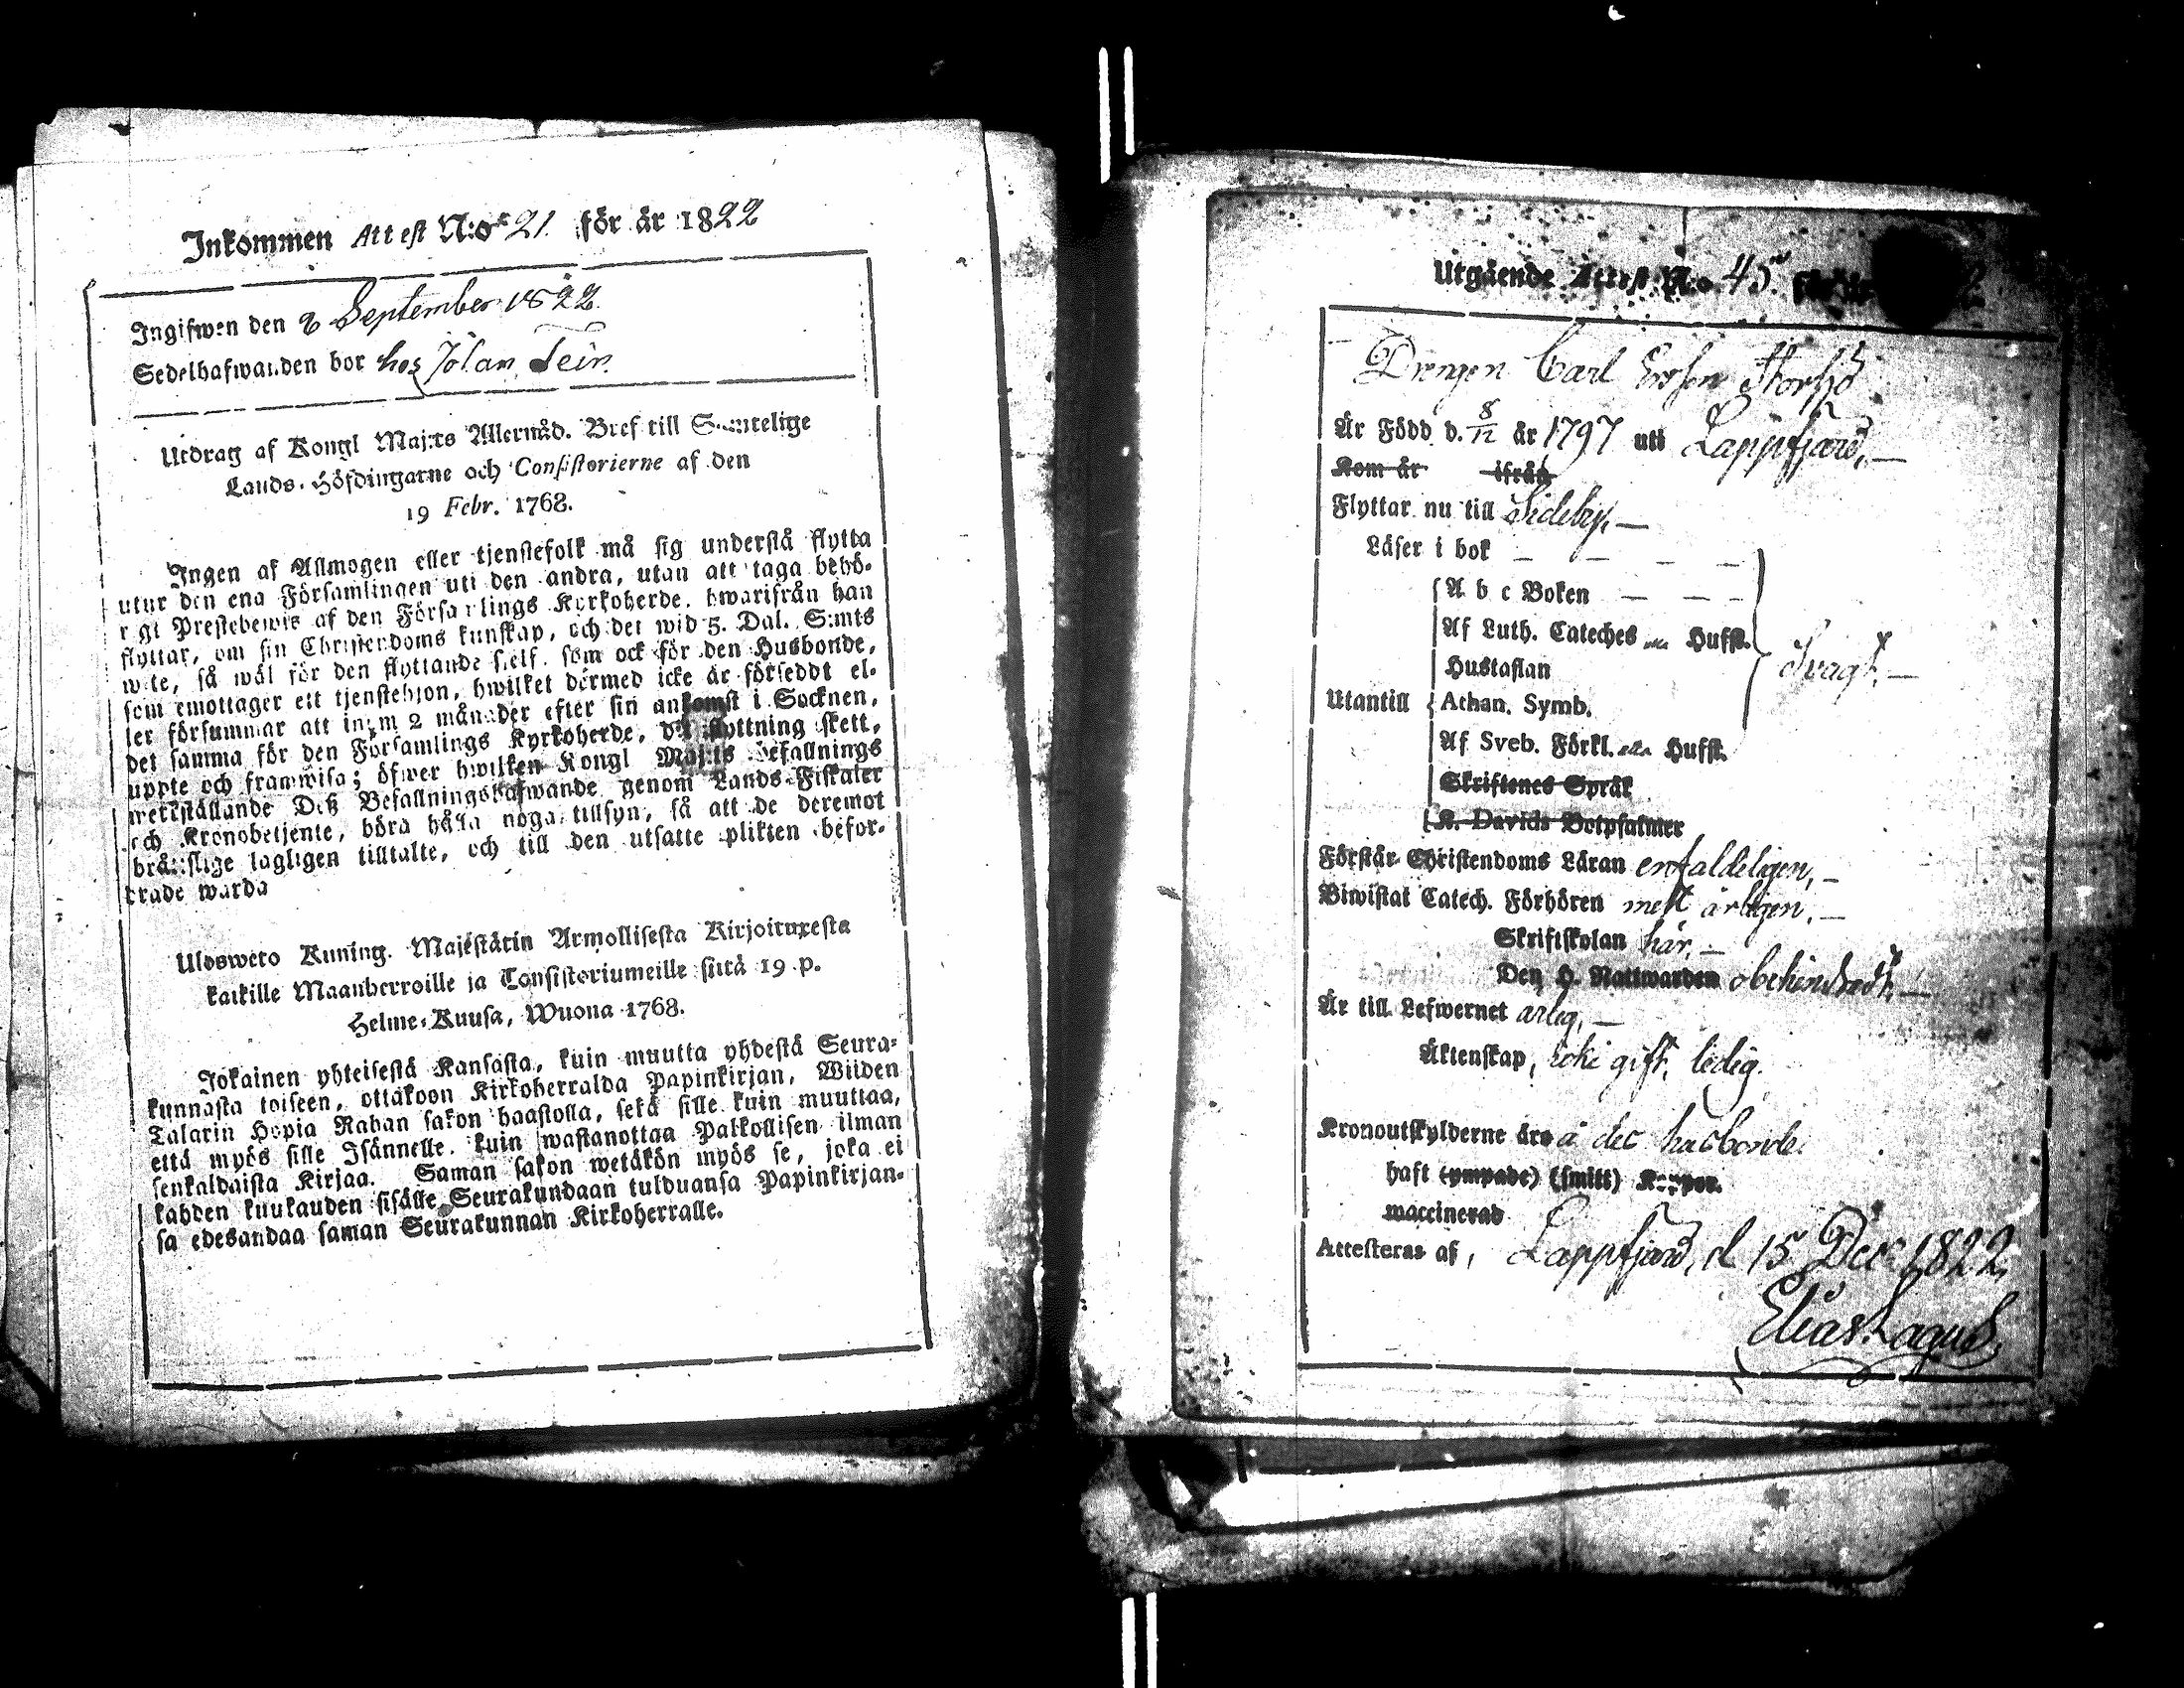 Inkommen Attest N:o 21. för år 1822
Ingifwen den 8 September 1822
Sedelhafwanden bor hos Johan Tein.
Utdrag af Kongl Maj:ts Allernåd. Bref till Samtelige
Lands-Höfdingarne och Consistorierne af den
19 Febr. 1768.
Ingen af Allmogen eller tjenstefolk må sig understå flytta
utur den ena Församlingen uti den andra, utan att taga behö-
rigt Prestebewis af den Församlings Kyrkoherde, hwarifrån han
flyttar, om sin Christendoms kunskap, och det wid 5. Dal. S:mts
wite, så wäl för den flyttande sielf, som ock för den Husbonde,
som emottager ett tjenstehjon, hwilket dermed icke är förseddt el-
ler försummar att inom 2 månader efter sin ankomst i Socknen,
det samma för den Församlings Kyrkoherde, dit flyttning skett,
uppte och framwisa; öfwer hwilken Kongl Maj:ts befallnings
werkställande Deß Befallningshafwande genom Lands-Fiskaler
och Kronobetjente, böra hålla noga tillsyn, så att de deremot
bråttslige lagligen tilltalte, och till den utsatte plikten befor-
drade warda
Ulosweto Kuning. Majestätin Armollisesta Kirjoituxesta
kaikille Maanherroille ja Consistoriumeille siitä 19 p.
Helme-Kuusa, Wuona 1768.
Jokainen yhteisestä Kansasta, kuin muutta yhdestä Seura-
kunnasta toiseen, ottakoon Kirkoherralda Papinkirjan, Wiiden
Talarin Hopia Rahan sakon haastolla, sekä sille kuin muuttaa,
että myös sille Isännelle, kuin wastanottaa Palkollisen ilman
senkaldaista Kirjaa. Saman sakon wetäkön myös se, joka ei
kahden kuukauden sisälle Seurakundaan tulduansa Papinkirjan-
sa edesandaa saman Seurakunnan Kirkoherralle.
Utgående Attest N:o 45. för år
Drengen Carl Ersson Storsjö
Är Född d. 8/12 år 1797 uti Lappfjärd,
Kom år ifrån
Flyttar nu till Sideby,
Läser i bok
A b c Boken
Af Luth. Cateches Hufst.
Hustaflan
Svagt,
Utantill Athan. Symb.
Af Sveb. Förkl. Hufst.
Skriftenes Språk
K. Davids Botpsalmer
Förstår Christendoms Läran enfaldeligen,
Biwistat Catech. Förhören mest årligen,
Skriftskolan här,
Den H. Nattwarden obehindradt,
Är till Lefwernet ärlig,
Äktenskap, icke gift, ledig.
Kronoutskylderne äro å des husbonde.
haft (ympade) (smitt) Koppor.
waccinerad
Attesteras af, Lappfjärd, d 15 Dec 1822,
Elias Lagus